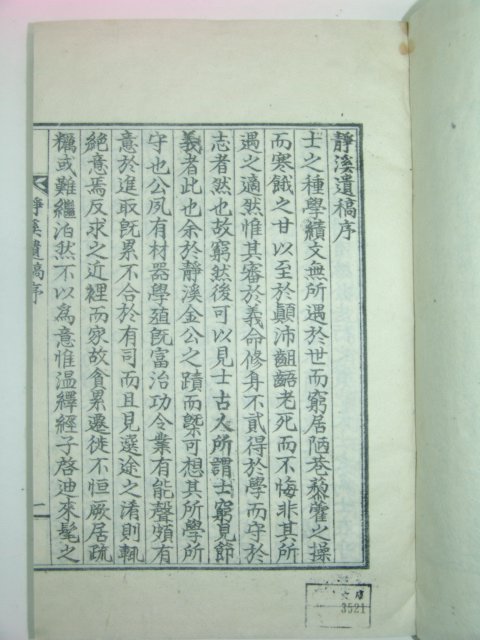 靜溪遺稿序
士之種學績文無所遇於世而窮居陋巷藜藿之操
而寒餓之甘以至於顛沛齟齬老死而不悔非其所
遇之適然惟其審於義命修身不貳得於學而守於
志者然也故窮然後可以見士古人所謂士窮見節
義者此也余於靜溪金公之蹟而槩可想其所學所
守也公夙有材器學殖旣富治功令業有能聲頗有
意於進取旣累不合於有司而且見選途之淆則輒
絶意焉反求之近裡而家故貧累遷徙不恒厥居疏
糲或難繼泊然不以為意惟溫繹經子啓迪來髦之
靜溪遺稿序
一
3521